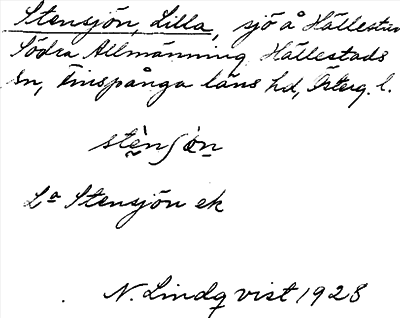 Stensjön, Lilla, sjö å Hällestads
Södra Allmänning Hällestads
sn, Finspånga läns hd, Österg. l.
stènʃön
La Stensjön ek
N. Lindqvist 1928